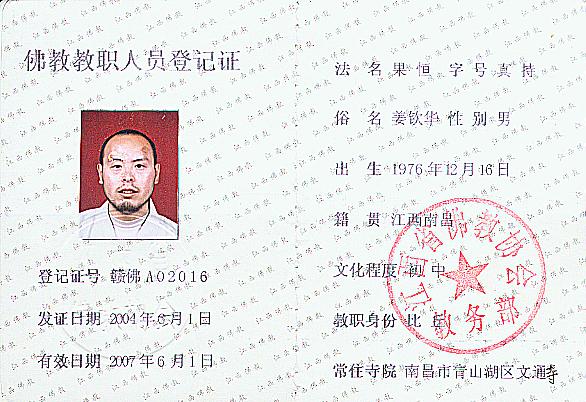 佛教教职人员登记证
登记证号 赣佛A02016
发证日期 2004年6月1日
有效日期 2007年6月1日
法名 果恒 字号 真持
俗名 姜钦华 性别 男
出生 1976年12月16日
籍贯 江西南昌
文化程度 初中
教职身份 比丘
常住寺院 南昌市青山湖区文通寺
江西省佛教协会
教务部
江西佛教